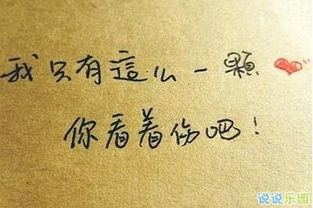 我只有這么一顆❤
你看着伤吧!
说说乐园